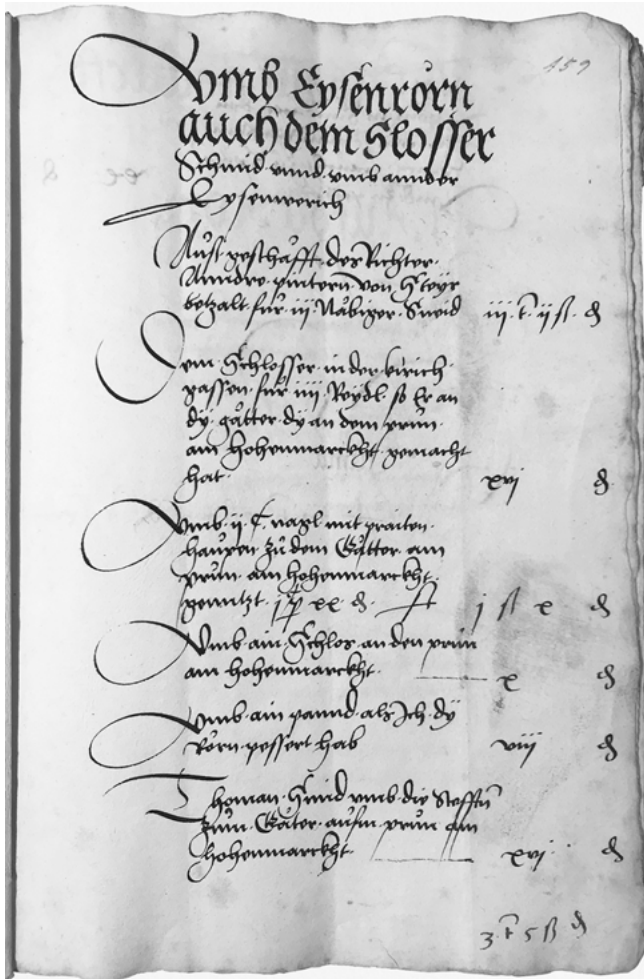 459
Vmb Eysenrorn
auch dem Slosser
Schmid vnnd vmb annder
Eysenwerich
Aus geschäfft des Richter
Anndre pintern von Steyr
betzalt für iij Näbiger Sneid iij t ij ß ₰
Dem Schlosser in der kirich
gassen für iiij Reydl so Er an
dy gätter dy an dem prun
am hohenmarckht gemacht
hat xvj ₰
Vmb ij C nagl mit praiten
haupen zu dem Gatter am
prun am hohenmarckht
genutzt xx ₰ j ß x ₰
Vmb ain Schlos an den prun
am hohenmarckht x ₰
Vmb ain pannd als Ich dy
Rorn pessert hab viij ₰
Thoman Smid vmb die Steften
zum Gater aufm prun am
hohenmarckht xvj ₰
3 t 5 ß ₰